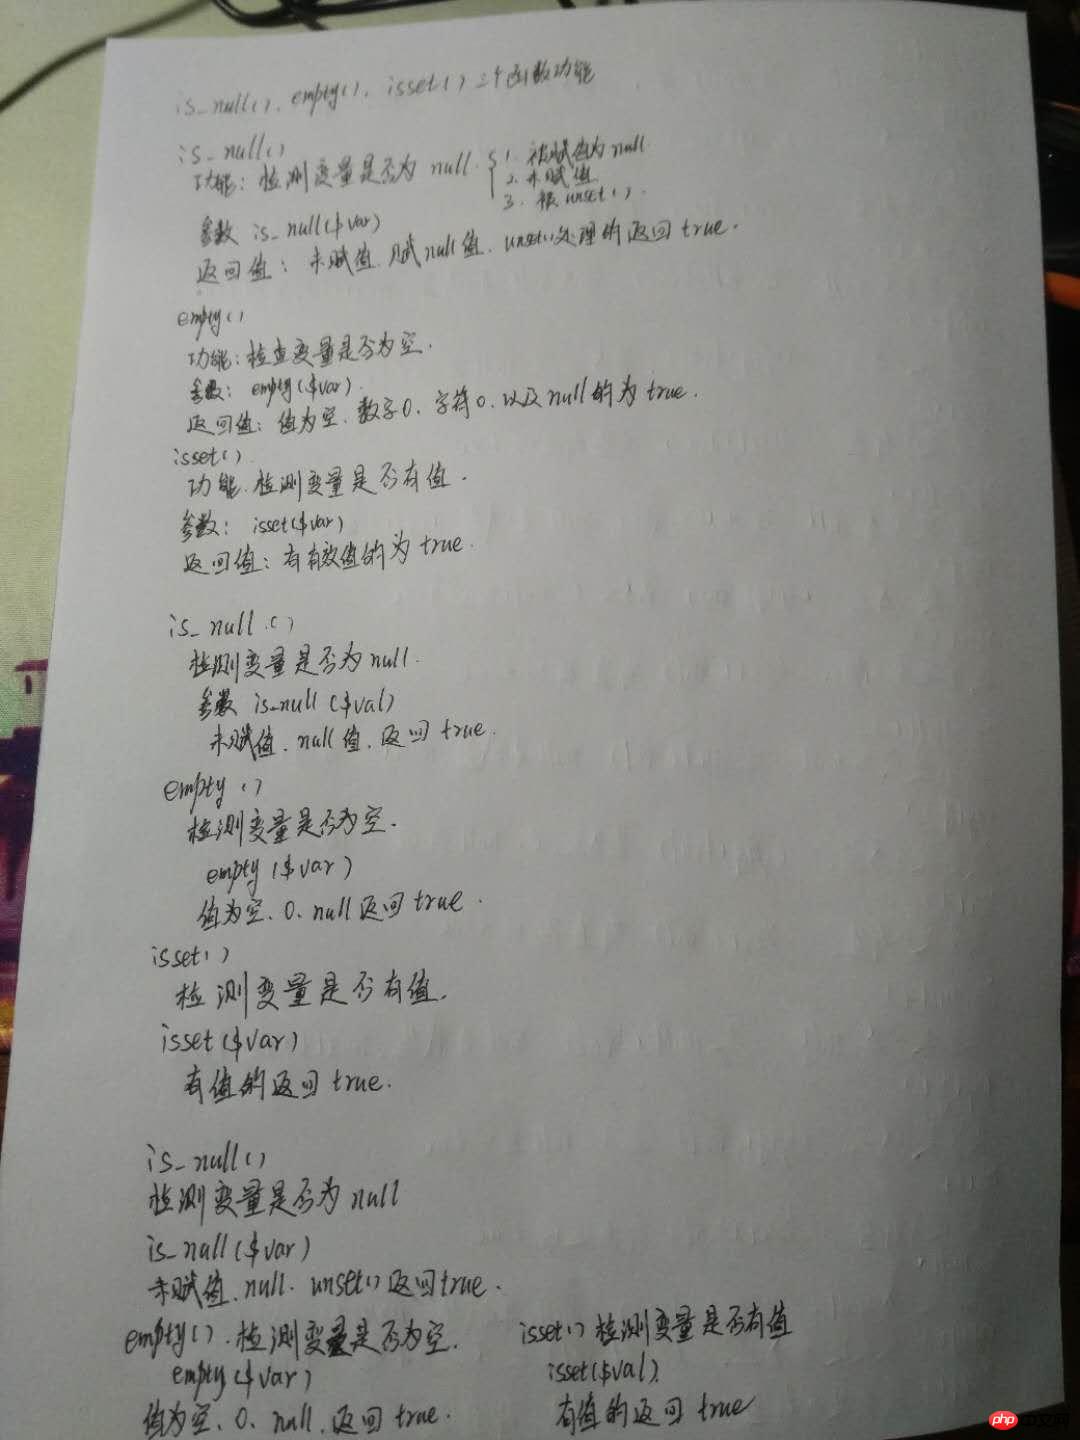 is_null()、empty()、isset()三个函数功能
is_null()
功能：检测变量是否为 null. { 1. 被赋值为null
2. 未赋值
3. 被unset().
参数 is_null($var)
返回值：未赋值、赋null值、unset()处理的返回true.
empty()
功能：检查变量是否为空.
参数： empty($var).
返回值：值为空、数字0、字符0、以及null的为true.
isset().
功能. 检测变量是否有值.
参数： isset($var)
返回值：有有效值的为true.
is_null()
检测变量是否为null.
参数 is_null($val)
未赋值、null值、返回true.
empty()
检测变量是否为空.
empty($var)
值为空、0、null返回true.
isset()
检测变量是否有值.
isset($var)
有值的返回true.
is_null()
检测变量是否为null
is_null($var)
未赋值、null、unset()返回true.
empty().检测变量是否为空.
empty($var)
值为空、0、null、返回true.
isset()检测变量是否有值
isset($val).
有值的返回true
php